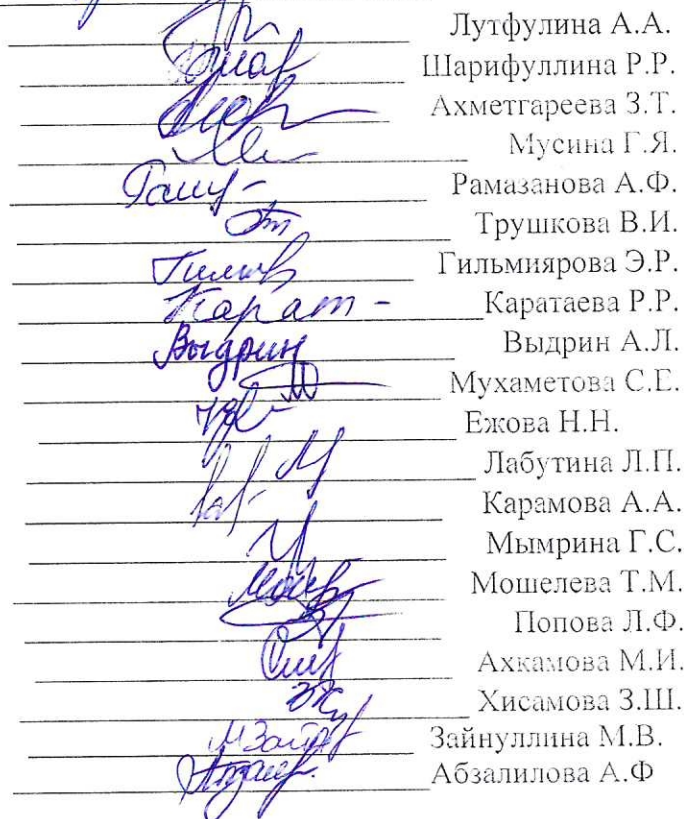 Лутфулина А.А.
Шарифуллина Р.Р.
Ахметгареева З.Т.
Мусина Г.Я.
Рамазанова А.Ф.
Трушкова В.И.
Гильмиярова Э.Р.
Карат- Каратаева Р.Р.
Выдрин Выдрин А.Л.
Мухаметова С.Е.
Ежова Н.Н.
Лабутина Л.П.
Карамова А.А.
Мымрина Г.С.
Мошелева Т.М.
Попова Л.Ф.
Ахкамова М.И.
Хисамова З.Ш.
Зайнуллина М.В.
Абзалилова А.Ф